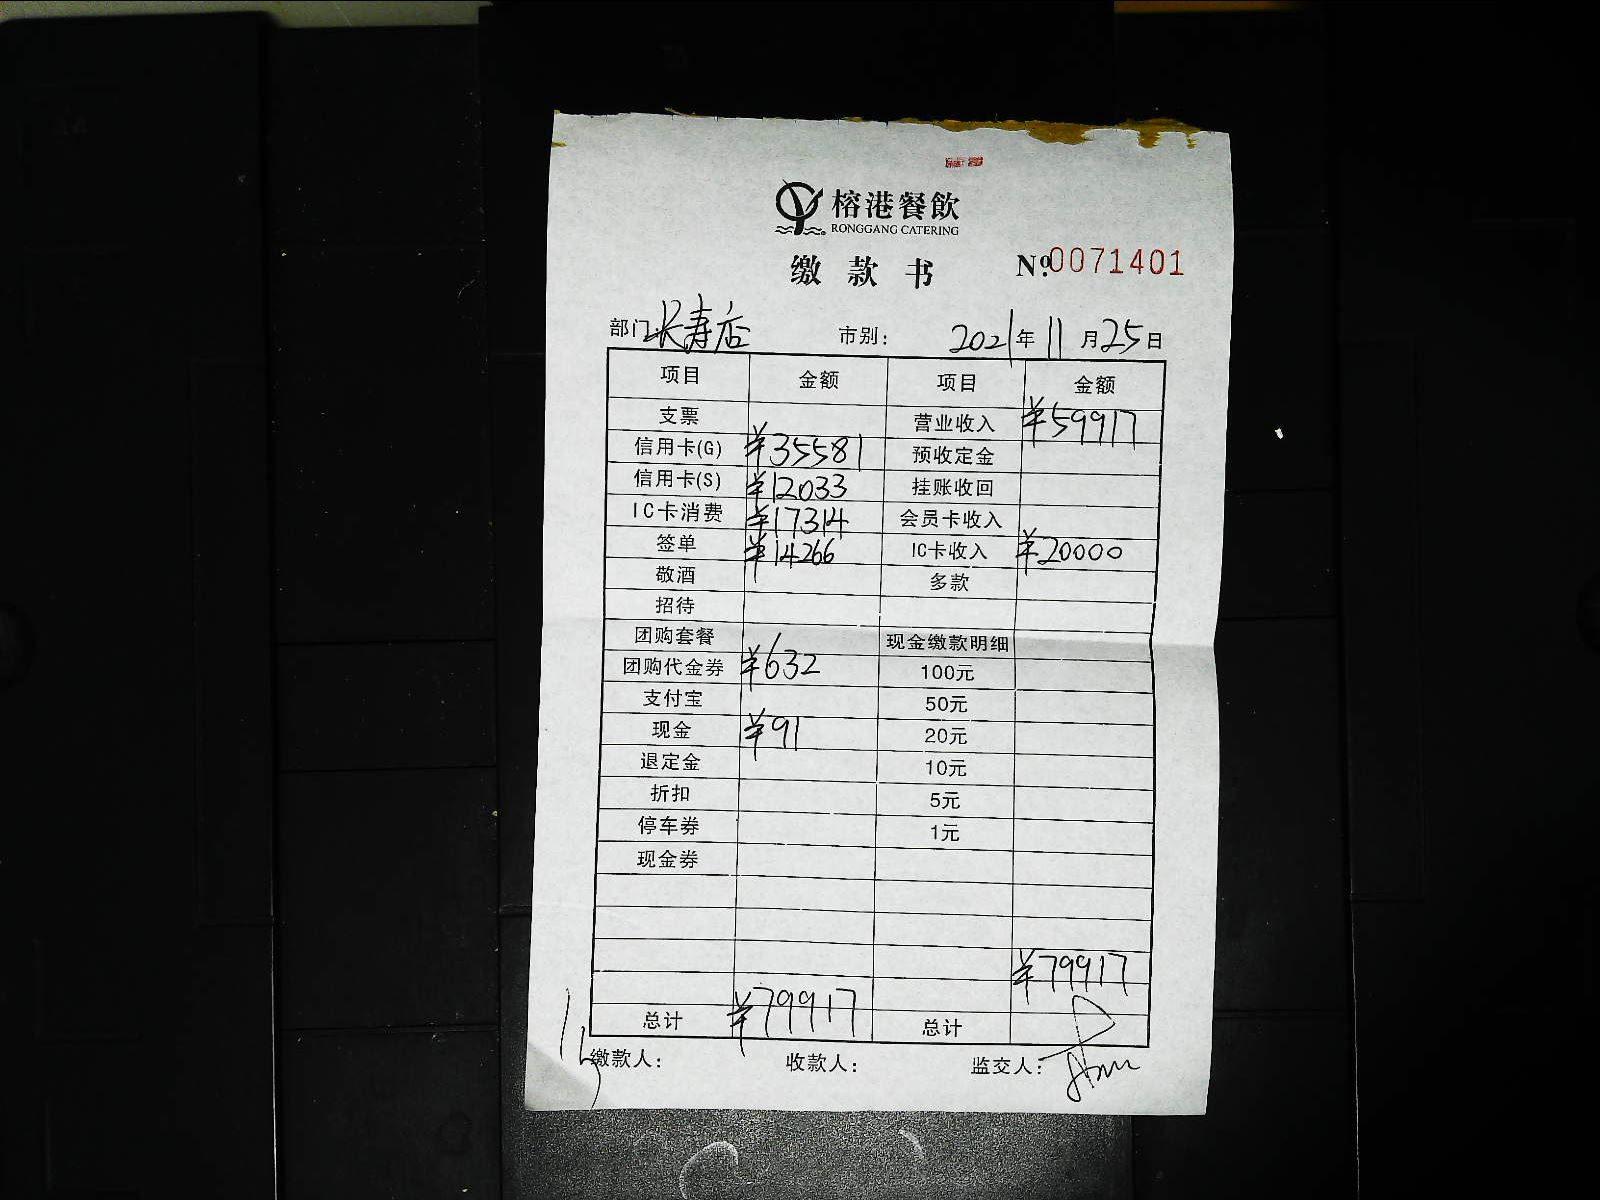 榕港餐飲
RONGGANG CATERING
缴款书 №0071401
部门:长寿店 市别: 2021年11月25日
项目 金额 项目 金额
支票 营业收入 ¥59917
信用卡(G) ¥35581 预收定金
信用卡(S) ¥12033 挂账收回
IC卡消费 ¥17314 会员卡收入
签单 ¥14266 IC卡收入 ¥20000
敬酒 多款
招待
团购套餐 现金缴款明细
团购代金券 ¥632 100元
支付宝 50元
现金 ¥91 20元
退定金 10元
折扣 5元
停车券 1元
现金券
¥79917
总计 ¥79917 总计
缴款人: 收款人: 监交人: